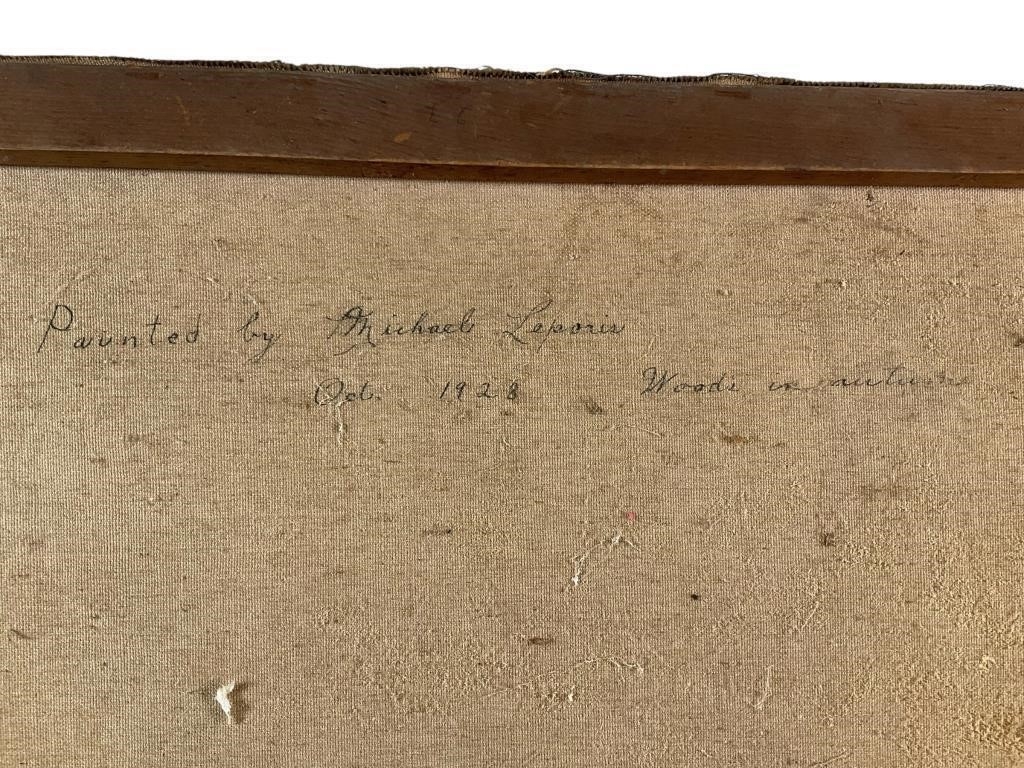 Paunted by Michael Leporis
Oct. 1928 Woods in autumn